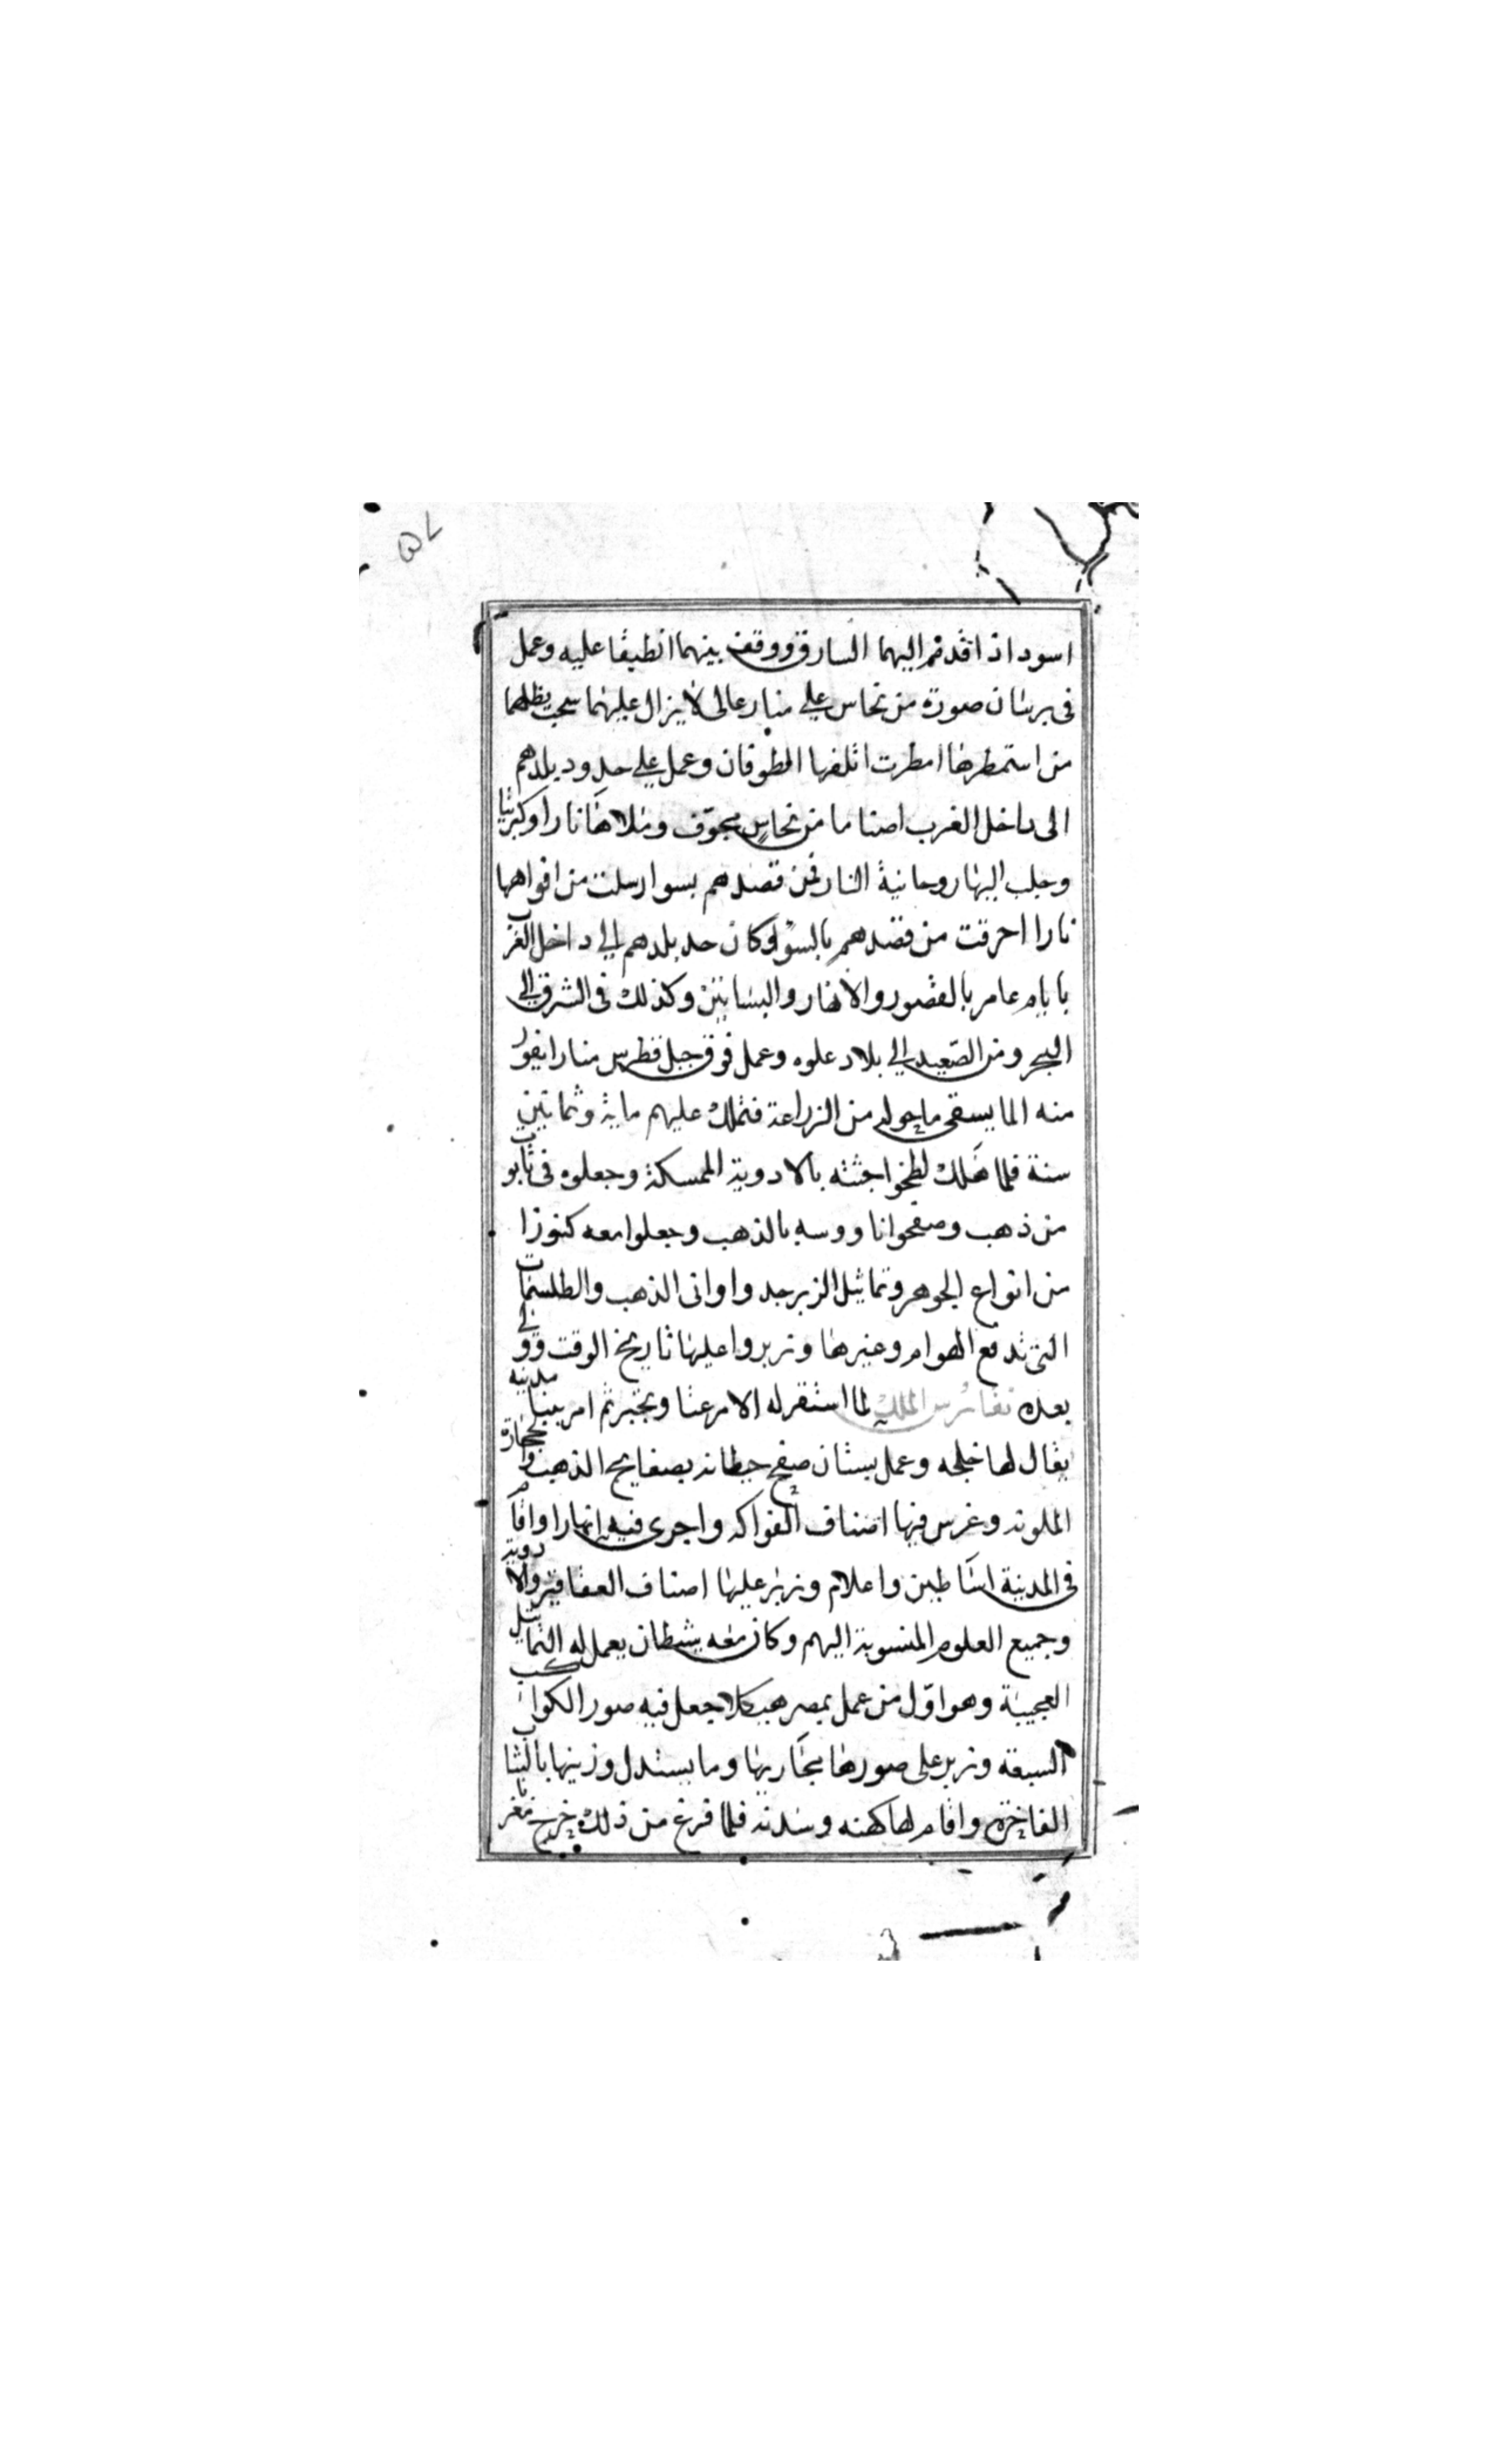 ٥٧
اسود اذا قدم اليهما السارق ووقف بينهما انطبقا عليه وعمل
فى برسان صورة من نحاس على منار عالى لا يزال عليهما سحب يظلهما
من استمطرها امطرت اتلفها الطوفان وعمل على حدود بلدهم
الى داخل الغرب اصناما من نحاس مجوف وملاها نارا وكبريتا
وجلب اليها روحانية النار فمن قصدهم بسو ارسلت من افواهها
نارا احرقت من قصدهم بالسو وكان حد بلدهم الى داخل الغرب
بايام عامر بالقصور والانهار والبساتين وكذلك فى الشرق الى
البحر ومن الصعيد الى بلاد علوه وعمل فوق جبل قطرس منارا يفور
منه الما يسقى ما حوله من الزراعة فتملك عليهم ماية وثمانين
سنة فلما هلك لطخوا جثته بالادوية الممسكة وجعلوه فى تابوت
من ذهب وصفحوا ناووسه بالذهب وجعلوا معه كنوزا
من انواع الجوهر وتماثيل الزبرجد واوانى الذهب والطلسمات
التى تدفع الهوام وغيرها وزبروا عليها تاريخ الوقت وولى
بعده نقارس الملك لما استقر له الامر عتا وتجبر ثم امر ببنا مدينه
يقال لها خلجه وعمل بستان صفح حيطانه بصفايح الذهب والحجارة
الملونه وغرس فيها اصناف الفواكه واجرى فيه انهارا واقام
فى المدينة اساطين واعلام وزبر عليها اصناف العقاقير والادوية
وجميع العلوم المنسوبة اليهم وكان معه شيطان يعمل له التماثيل
العجيبة وهو اول من عمل بمصر هيكلا جعل فيه صور الكواكب
السبعه وزبر على صورها مجاريها وما يستدل وزينها بالثياب
الفاخره واقام لها كهنه وسدنه فلما فرغ من ذلك خرج مغربا